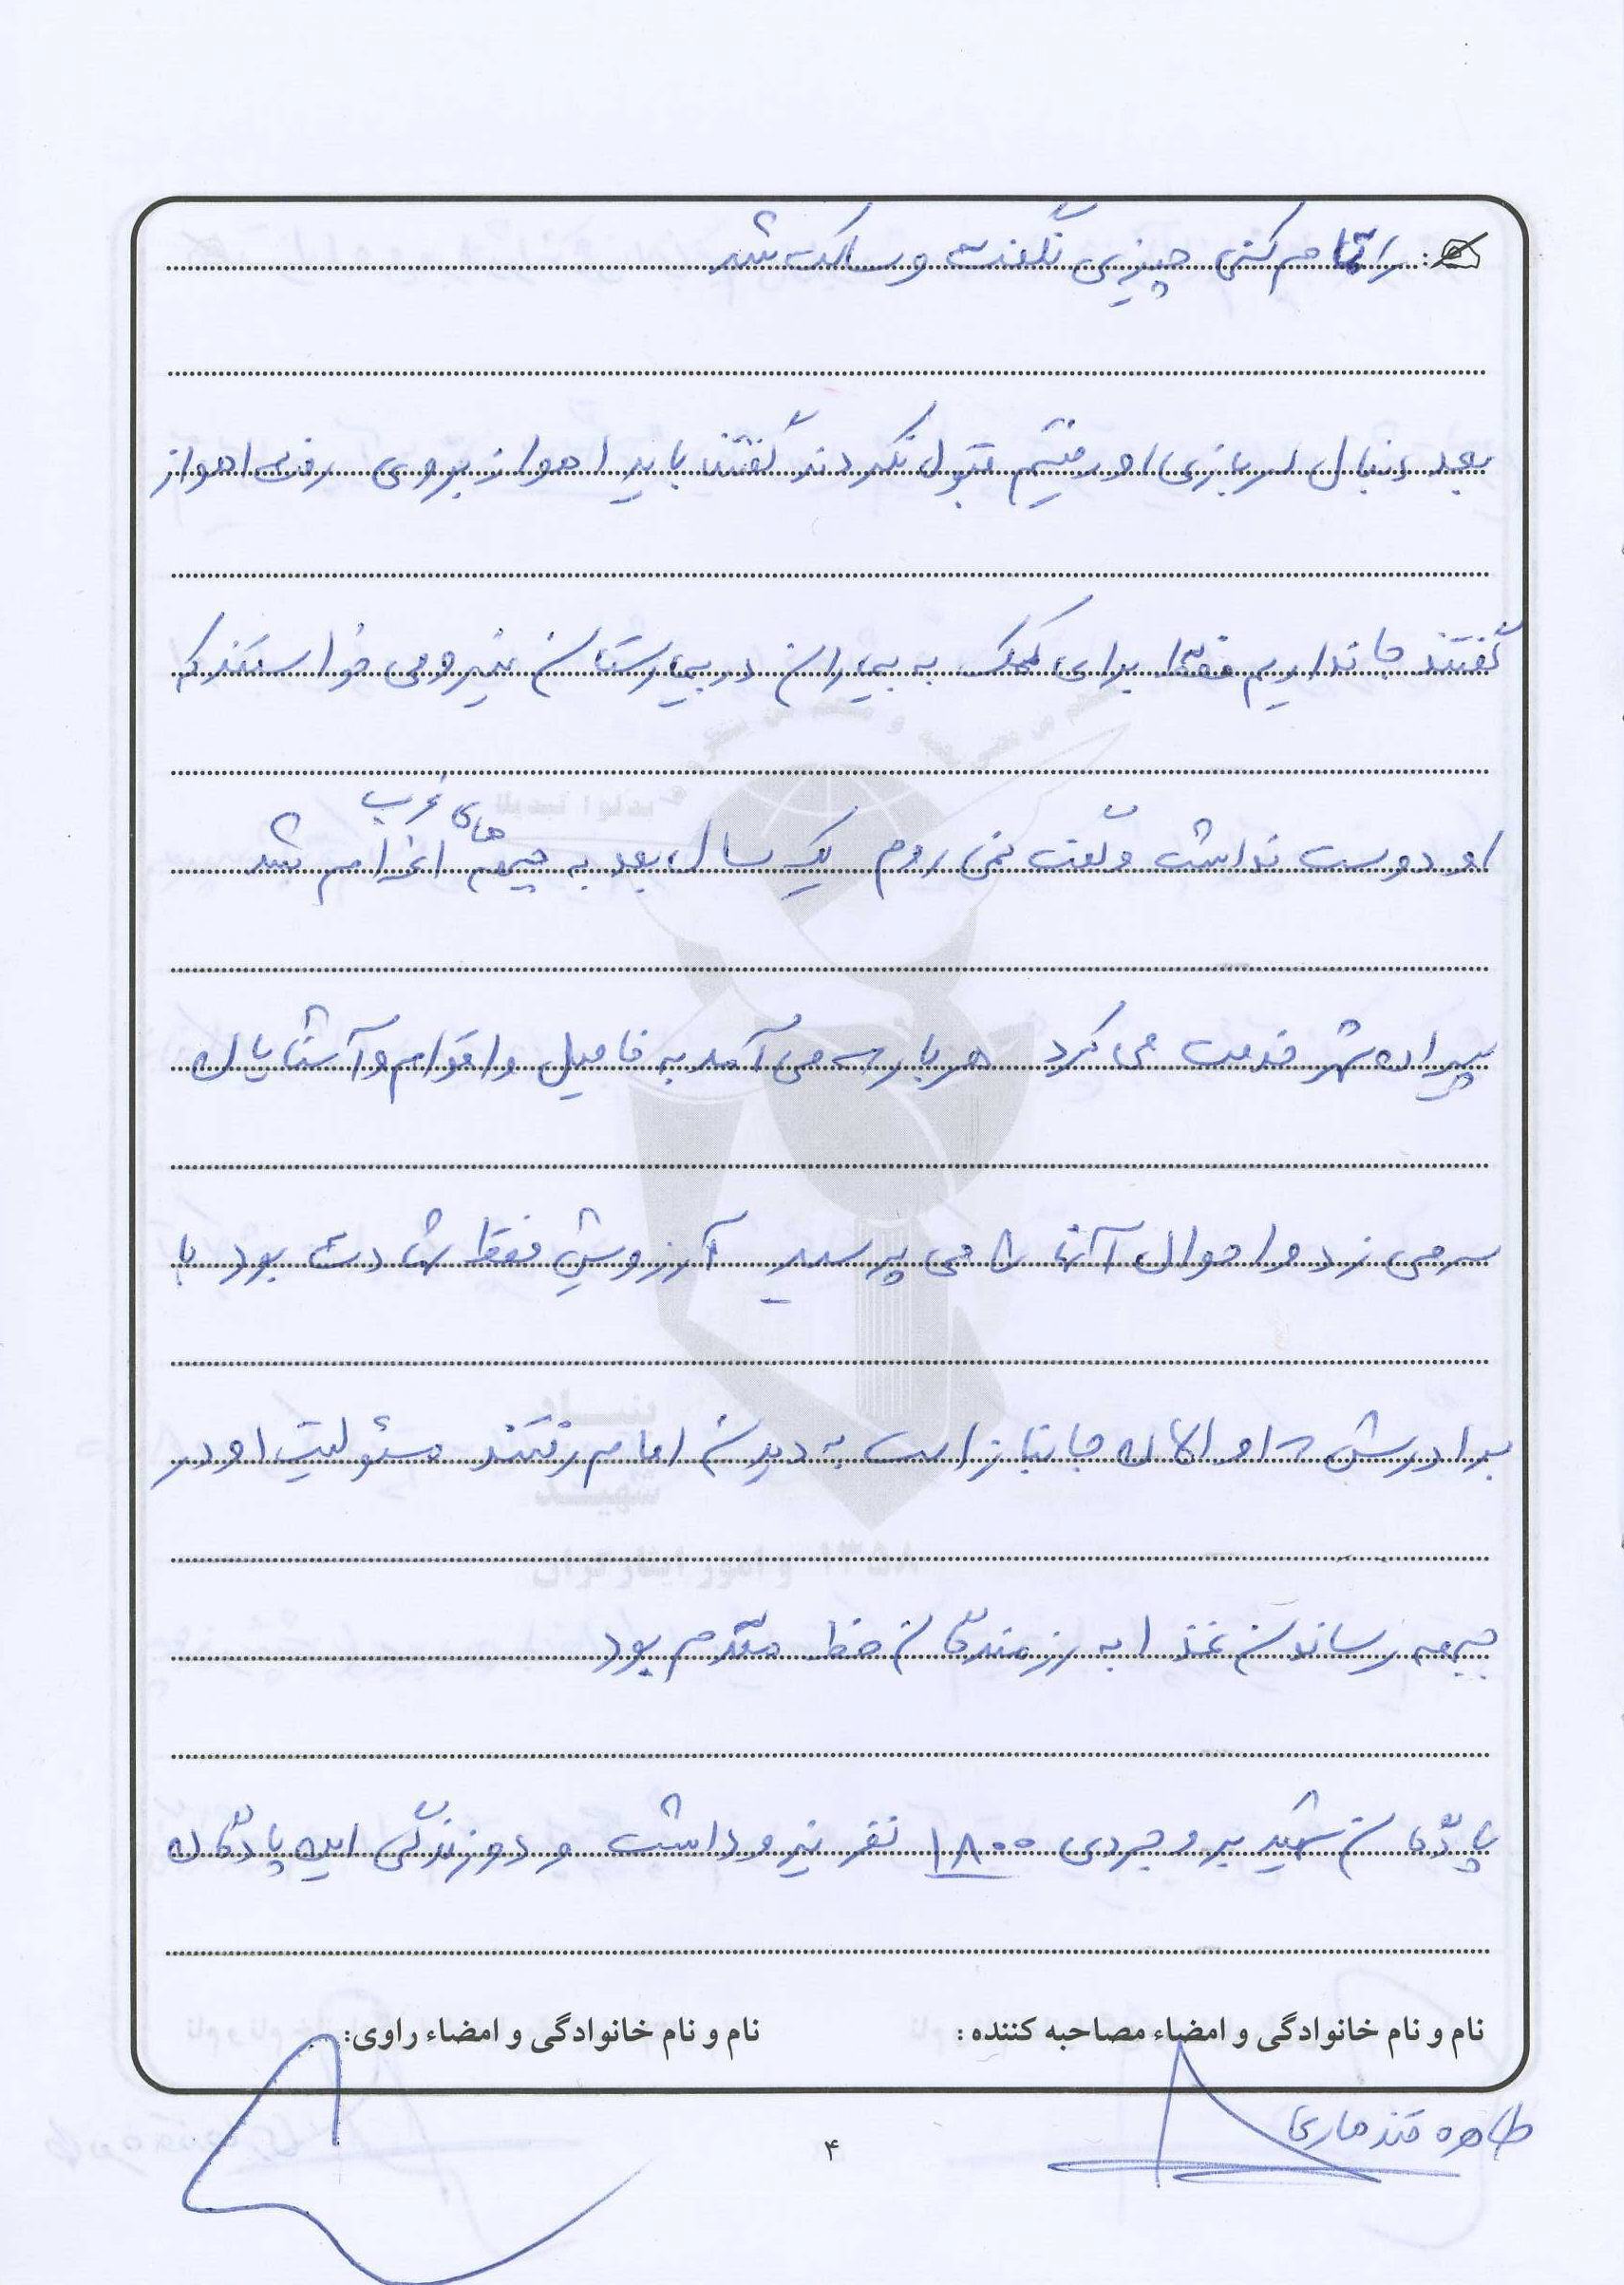 را تمام کنی چیزی نگفت و ساکت شد
بعد دنبال سربازی او رفتیم قبول نکردند گفتند باید اهواز بروی رفت اهواز
گفتند جا نداریم فقط برای کمک به بیماران در بیمارستان نیرو می خواستند که
او دوست نداشت و گفت نمی روم یک سال بعد به جبهه های غرب اعزام شد
پیرانشهر خدمت می کرد هر بار که می آمد به فامیل و اقوام و آشنایان
سر می زد و احوال آنها را می پرسید آرزویش فقط شهادت بود با
برادرش که او الان جانباز است به دیدن امام رفتند مسئولیت او در
جبهه رساندن غذا به رزمندگان خط مقدم بود
پادگان شهید بروجردی ۱۸۰۰ نفر نیرو داشت و دو زندگی این پادگان
نام و نام خانوادگی و امضاء مصاحبه کننده : نام و نام خانوادگی و امضاء راوی:
طاهره قندهاری
۴
بنیاد
شهید
و امور ایثارگران ۱۳۵۸